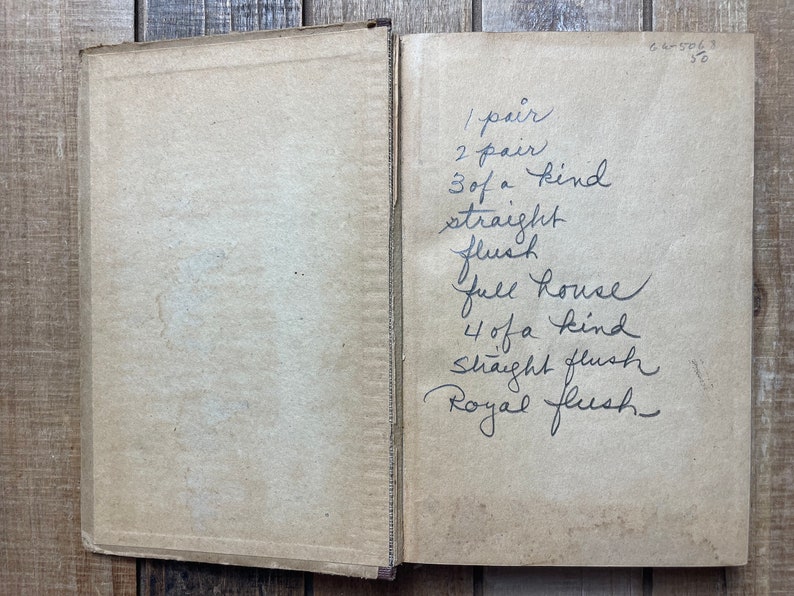 64-5063
50
1 pair
2 pair
3 of a kind
straight
flush
full house
4 of a kind
straight flush
Royal flush